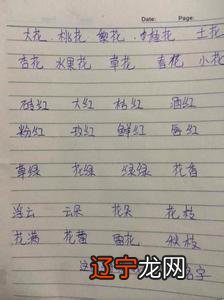 Date: Page:
大花 桃花 梨花 桂花 土花
杏花 水果花 草花 春花 小花
砖红 大红 桃红 酒红
粉红 玫红 鲜红 唇红
草绿 花绿 绿绿 花香
浮云 云朵 花朵 花枝
花满 花蕾 雪花 秋枝
名字
辽宁龙网